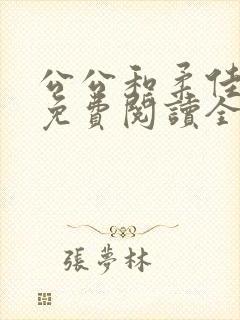 公公和柔佳
免費閱讀全
張夢林